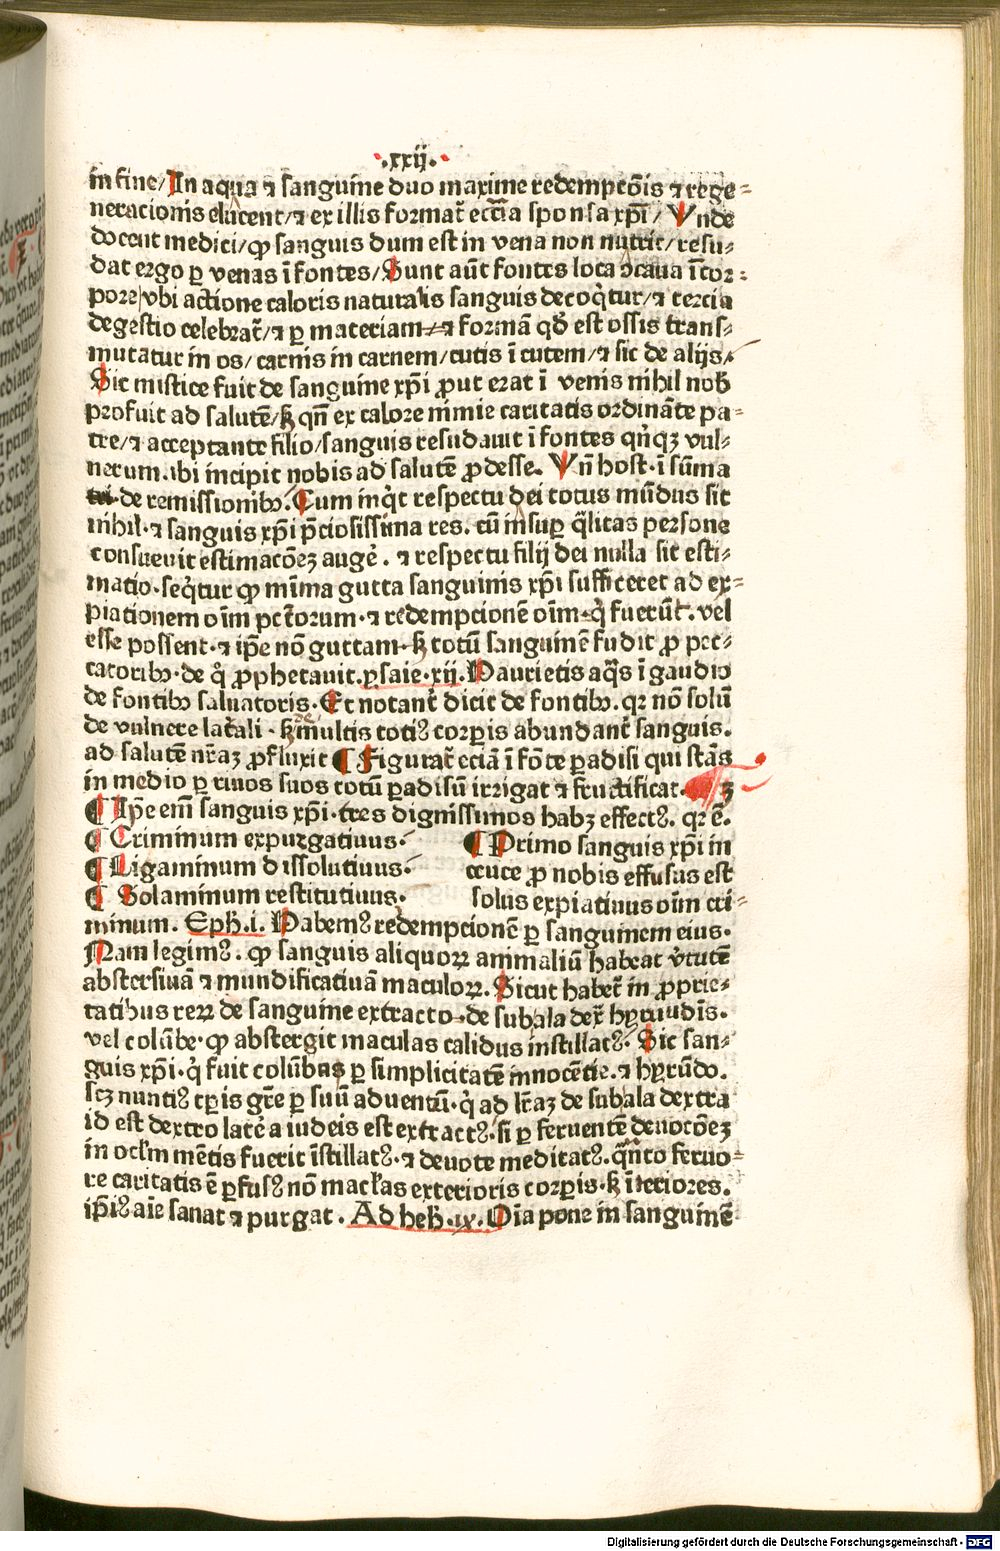 .xxij.
in fine/ In aqua ⁊ sanguine duo maxime redempcōis ⁊ rege⸗
neracionis elucent/ ⁊ ex illis format̄ eccīa sponsa xp̄i/ Vnde
docent medici/ ꝙ sanguis dum est in vena non nutrit/ resu⸗
dat ergo ꝑ venas ī fontes/ Sunt aūt fontes loca ↄcaua ī cor⸗
pore/ vbi actione caloris naturalis sanguis decoq̇tur/ ⁊ tercia
degestio celebrat̄/ ⁊ ꝑ materiam ⁊ formā qd̄ est ossis trans⸗
mutatur in os/ carnis in carnem/ cutis ī cutem/ ⁊ sic de alijs/
Sic mistice fuit de sanguine xp̄i ꝓut erat ī venis nihil nob̄
profuit ad salutē/ sꝫ qn̄ ex calore nimie caritatis ordināte pa⸗
tre/ ⁊ acceptante filio/ sanguis resudauit ī fontes qn̄qꝫ vul⸗
nerum. ibi incipit nobis ad salutē ꝓdesse. Vn̄ host. ī sūma
de remissionibꝰ. Cum inq̇t respectu dei totus mūdus sit
nihil. ⁊ sanguis xp̄i p̄ciosissima res. cū insuꝑ q̄litas persone
consueuit estimacōeꝫ augē. ⁊ respectu filij dei nulla sit esti⸗
matio. seq̇tur ꝙ mīma gutta sanguinis xp̄i sufficeret ad ex⸗
piationem oīm pctōrum. ⁊ redempcionē oīm. q̇ fuerūt. vel
esse possent. ⁊ ip̄e nō guttam. sꝫ totū sanguinē fudit ꝓ pec⸗
catoribꝰ. de q̄ ꝓphetauit. ysaie. xij. Haurietis aq̄s ī gaudio
de fontibꝰ saluatoris. Et notant̄ dicit de fontibꝰ. qꝛ nō solū
de vulnere lat̄ali. sꝫ de multis totiꝰ corꝑis abundant̄ sanguis.
ad salutē nr̄aꝫ ꝓfluxit ¶ Figurat̄ eciā ī fōte ꝑadisi qui stās
in medio ꝑ riuos suos totū ꝑadisū irrigat ⁊ fructificat.
¶ Ip̄e em̄ sanguis xp̄i. tres dignissimos habꝫ effectꝰ. qꝛ ē.
¶ Criminum expurgatiuus.
¶ Ligaminum dissolutiuus.
¶ Solaminum restitutiuus.
¶ Primo sanguis xp̄i in
cruce ꝓ nobis effusus est
solus expiatiuus oīm cri⸗
minum. Eph̄. i. Habemꝰ redempcionē ꝑ sanguinem eius.
Nam legimꝰ. ꝙ sanguis aliquoꝝ animaliū habeat v̇tutē
abstersiuā ⁊ mundificatiuā maculoꝝ. Sicut habet̄ in ꝓprie⸗
tatibus reꝝ de sanguine extracto. de sub ala dex̄ hyrūdis.
vel colūbe. ꝙ abstergit maculas calidus instillatꝰ. Sic san⸗
guis xp̄i. q̇ fuit colūbus ꝑ simplicitatē innocētie. ⁊ hyrūdo.
scꝫ nuntiꝰ tꝑis gr̄e ꝑ suū aduentū. q̇ ad lr̄aꝫ de sub ala dextra
id est dextro latē a iudeis est extractꝰ. si ꝑ feruentē deuocōeꝫ
in oclm mētis fuerit īstillatꝰ. ⁊ deuote meditatꝰ. qn̄to feruo⸗
re caritatis ē ꝑfusꝰ nō maclas exterioris corꝑis. sꝫ īteriores.
ip̄iꝰ aīe sanat ⁊ purgat. Ad heb̄. ix. Oīa pene in sanguinē
Digitalisierung gefördert durch die Deutsche Forschungsgemeinschaft - DFG